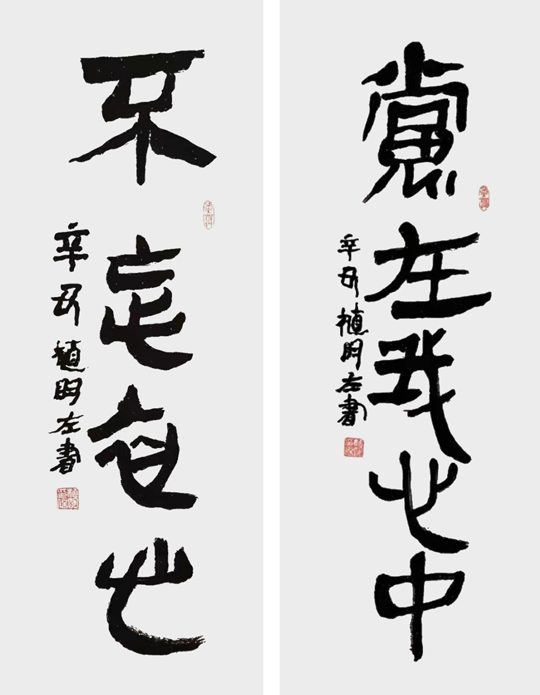 黨在我心中
辛丑植明左書
不忘初心
辛丑植明左書